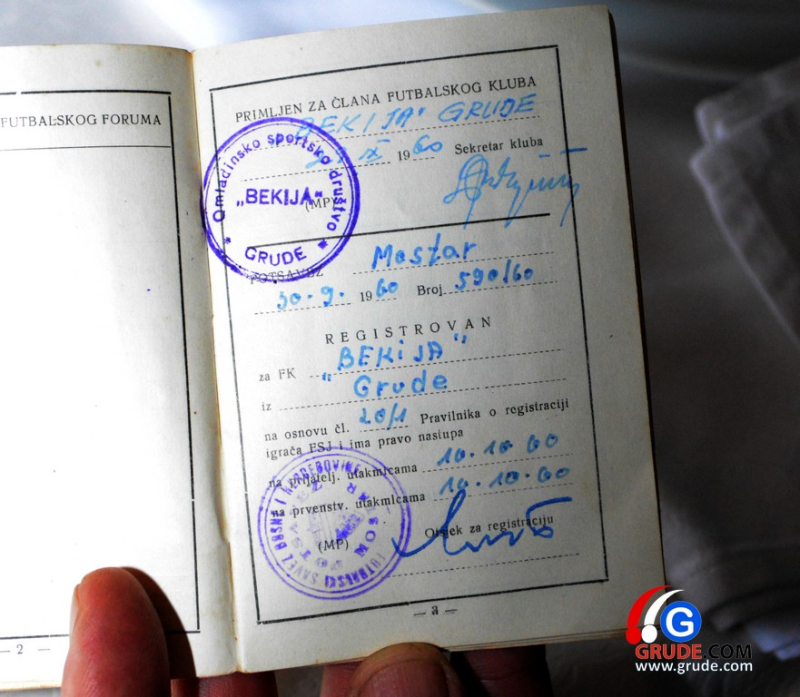 FUTBALSKOG FORUMA
— 2 —
PRIMLJEN ZA ČLANA FUTBALSKOG KLUBA
"BEKIJA" GRUDE
X 1960 Sekretar kluba
(MP)
Omladinsko sportsko društvo
„BEKIJA“
* GRUDE *
POTSAVEZ Mostar
30.9. 1960 Broj 590/60
REGISTROVAN
za FK "BEKIJA"
iz Grude
na osnovu čl. 20/1 Pravilnika o registraciji
igrača FSJ i ima pravo nastupa
na prijatelj. utakmicama 10.10.60
na prvenstv. utakmicama 10.10.60
(MP) Otsjek za registraciju
FUTBALSKI SAVEZ BOSNE I HERCEGOVINE
— a —
G
GRUDE.COM
www.grude.com